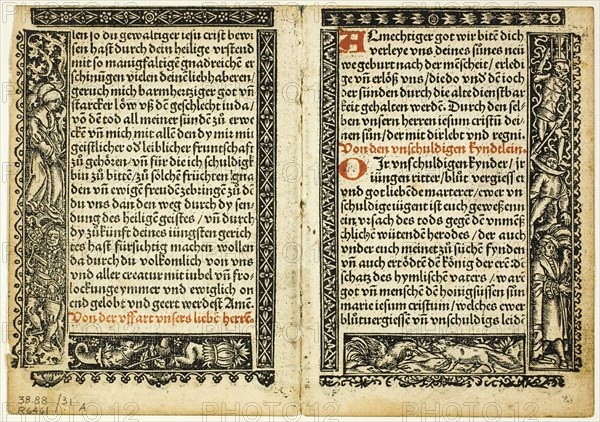 len so du gewaltiger iesu crist bewi
sen hast durch dein heilige vrstend
mit so manigfaltigē gnadreichē er
schinūgen vielen deinē liebhaberen/
geruch mich barmhertziger got vn̄
starcker löw vß dē geschlecht iuda/
vō dē tod all meiner sünde zū erwe
ckē vn̄ mich mit allē den dy mir mit
geistlicher od̄ leiblicher fruntschaft
zū gehörē/ vn̄ für die ich schuldig
bin zū bittē/ zū sölchē früchtē gna
den vn̄ ewigē freudē zebringē zū dē
du vns dan den weg durch dy sen
dung des heiligē geistes/ vn̄ durch
dy zūkunft deines iungsten gerich
tes hast fürsichtig machen wollen
da durch du volkomlich von vns
vnd aller creatur mit iubel vn̄ fro
lockunge ymmer vnd ewiglich on
end gelobt vnd geert werdest Amē
Von der vffart vnsers liebē herrē.
ALmechtiger got wir bitē dich
verleye vns deines sūnes neü
we geburt nach der mēscheit/ erledi
ge vn̄ erlöß vns/ die do vnd̄ dē ioch
der sünden durch die alte dienstbar
keit gehalten werdē. Durch den sel
ben vnsern herren iesum cristū dei
nen sūn/ der mit dir lebt vnd regni.
Von den vnschuldigen kyndelein.
O Ir vnschuldigen kynder/ ir
iüngen ritter/ blūt vergiesser
vnd got liebēde marterer/ ewer vn
schuldige iügent ist euch geweßenn
ein vrsach des tods gegē dē vnmēsch
lichē wütendē herodes/ der auch
vnder euch meinet zū süchē fynden
vn̄ auch ertödtē dē könig der erē dē
schatz des hymlischē vaters/ war
got vn̄ menschē dē honigsüssen sūn
marie iesum cristum/ welches ewer
blūtvergiessē vn̄ vnschuldigs leidē
38.88 /31
R6461 A
PHOTO12